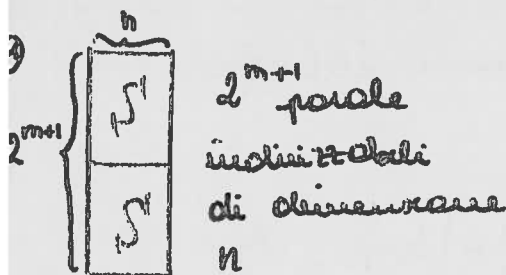 n
2^{m+1}
S
S
2^{m+1} parole
indirizzabili
di dimensione
n